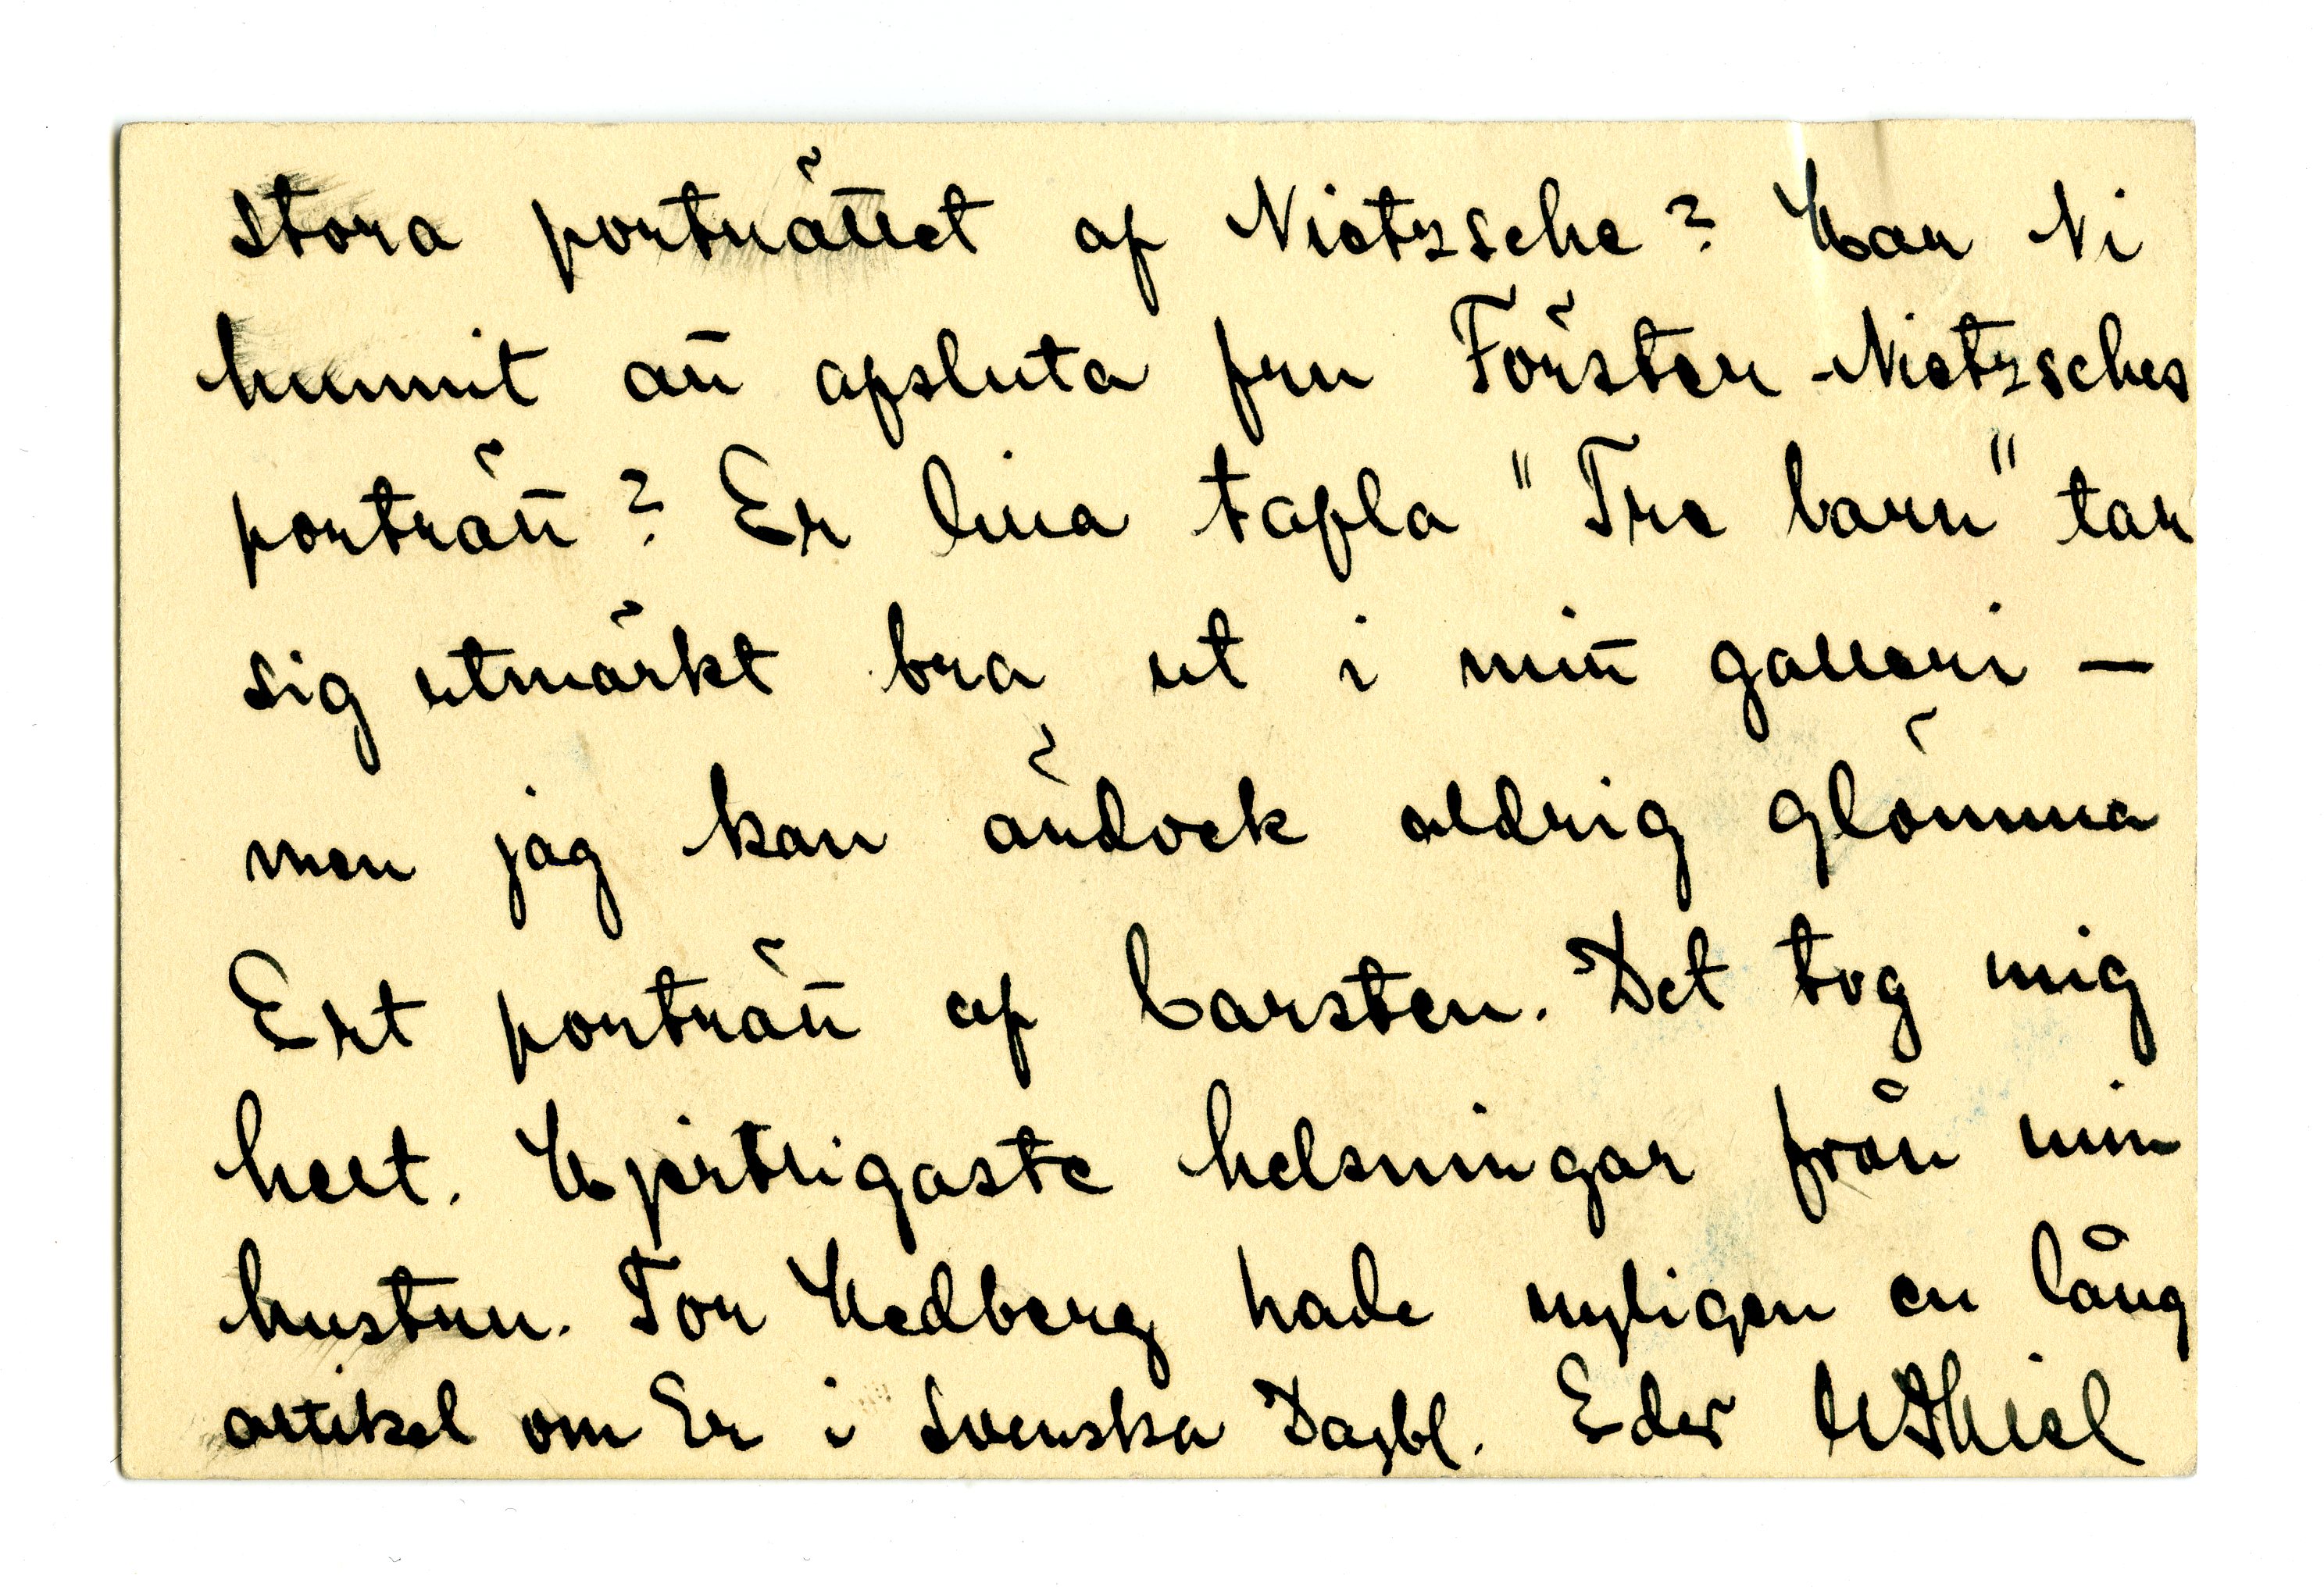 stora porträttet af Nietzsche? Har Ni
hunnit att afsluta fru Förster-Nietzsches
porträtt? Er lilla tafla "Tre barn" tar
sig utmärkt bra ut i mitt galleri —
men jag kan ändock aldrig glömma
Ert porträtt af Carsten. Det tog mig
helt. Hjertligaste helsningar från min
hustru. Tor Hedberg hade nyligen en lång
artikel om Er i Svenska Dagbl. Eder Thiel